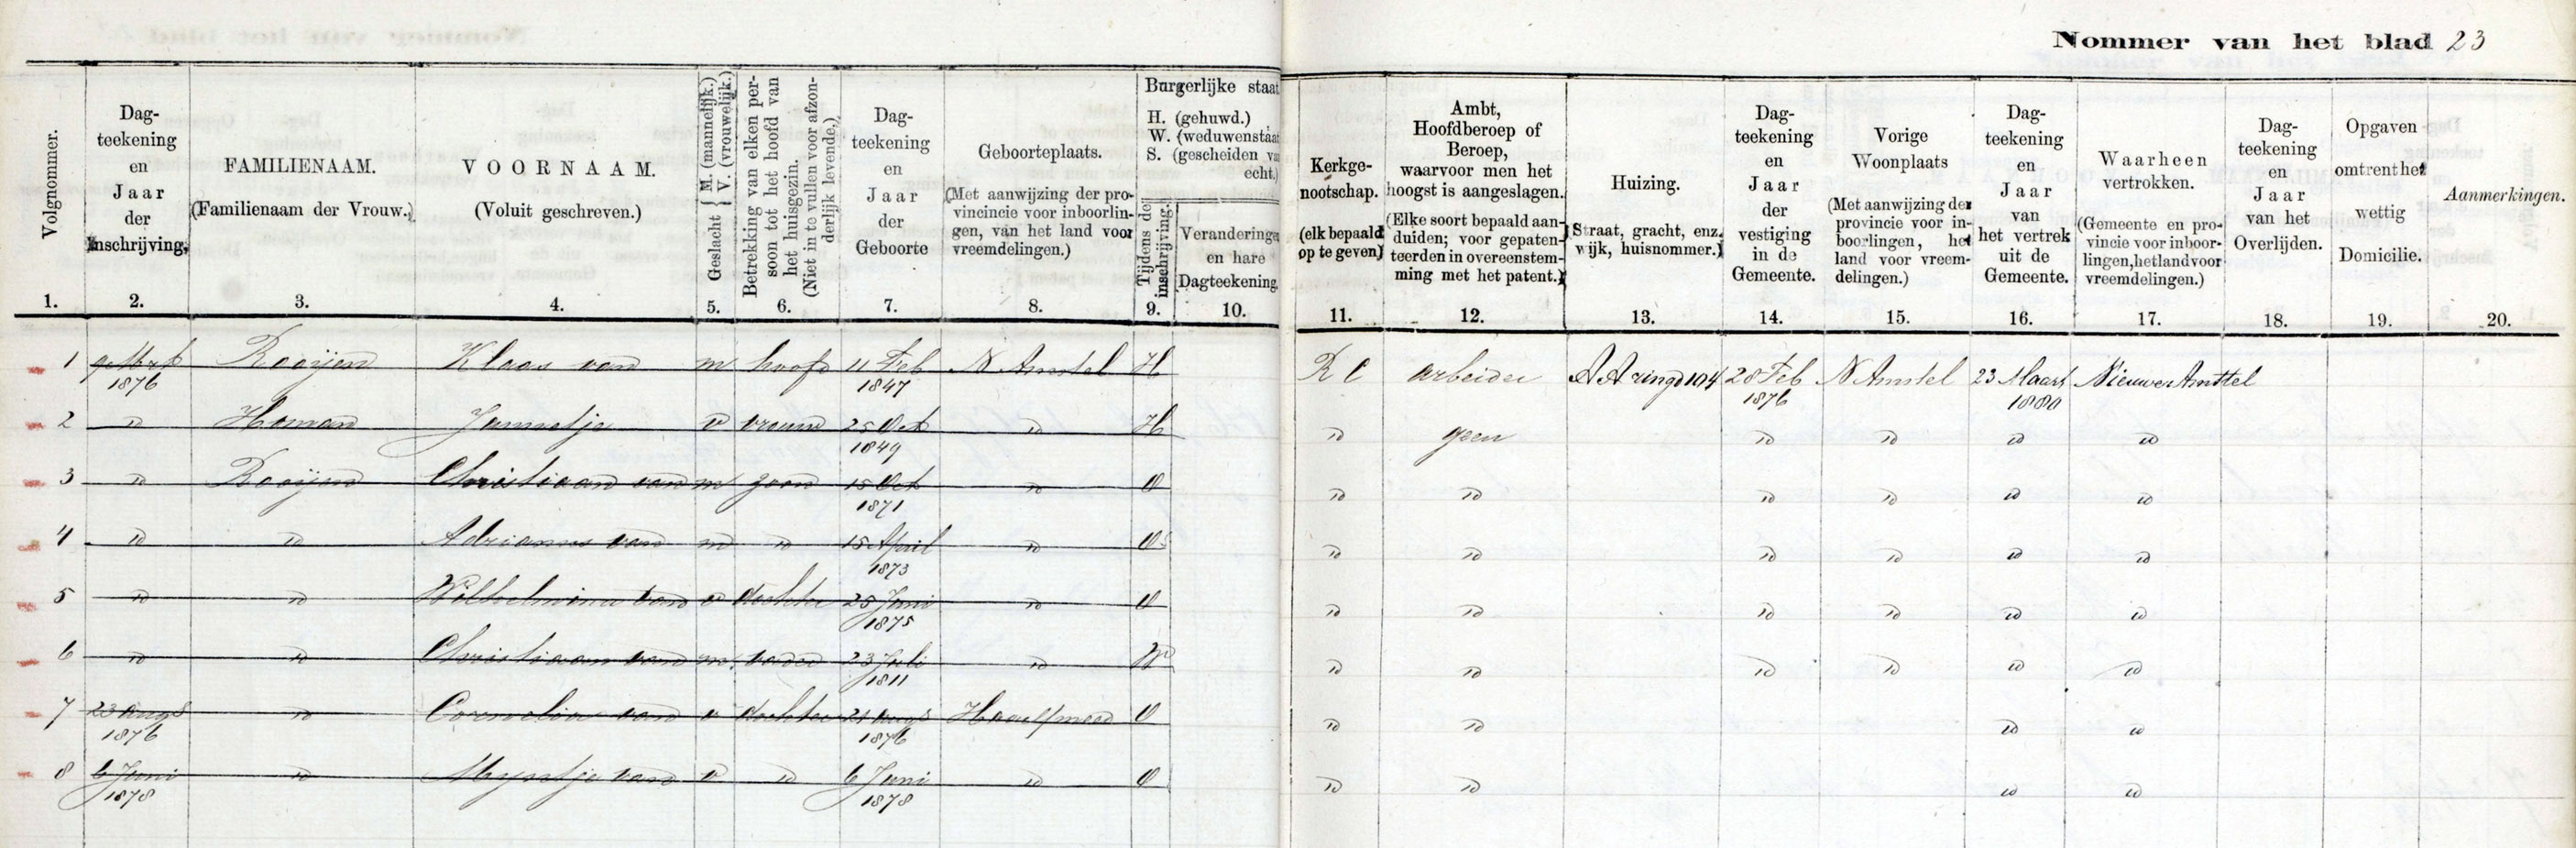 Nommer van het blad 23
Volgnommer.
Dag-
teekening
en
Jaar
der
Inschrijving.
FAMILIENAAM.
(Familienaam der Vrouw.)
VOORNAAM.
(Voluit geschreven.)
Geslacht { M. (mannelijk.)
V. (vrouwelijk.)
Betrekking van elken per-
soon tot het hoofd van
het huisgezin.
(Niet in te vullen voor afzon-
derlijk levende.)
Dag-
teekening
en
Jaar
der
Geboorte
Geboorteplaats.
(Met aanwijzing der pro-
vincincie voor inboorlin-
gen, van het land voor
vreemdelingen.)
Burgerlijke staat
H. (gehuwd.)
W. (weduwenstaat
S. (gescheiden va
echt.)
Tijdens de
inschrijving.
Veranderinge
en hare
Dagteekening
Kerkge-
nootschap.
(elk bepaald
op te geven)
Ambt,
Hoofdberoep of
Beroep,
waarvoor men het
hoogst is aangeslagen.
(Elke soort bepaald aan-
duiden; voor gepaten-
teerden in overeenstem-
ming met het patent.)
Huizing.
(Straat, gracht, enz.
wijk, huisnommer.)
Dag-
teekening
en
Jaar
der
vestiging
in de
Gemeente.
Vorige
Woonplaats
(Met aanwijzing der
provincie voor in-
boorlingen, het
land voor vreem-
delingen.)
Dag-
teekening
en
Jaar
van
het vertrek
uit de
Gemeente.
Waarheen
vertrokken.
(Gemeente en pro-
vincie voor inboor-
lingen, het land voor
vreemdelingen.)
Dag-
teekening
en
Jaar
van het
Overlijden.
Opgaven
omtrent het
wettig
Domicilie.
Aanmerkingen.
1. 2. 3. 4. 5. 6. 7. 8. 9. 10. 11. 12. 13. 14. 15. 16. 17. 18. 19. 20.
1 9 Mrt Rooijen Klaas van m hoofd 11 Feb N Amstel H R C arbeider 28 Feb N Amstel 23 Maart Nieuwer Amstel
1876 1847 1876 1880
2 " Homan Jannetje v vrouw 25 Oct " H " geen " " " "
1849
3 " Rooijen Christiaan van m zoon 15 Oct " O " " " " " "
1871
4 " " Adrianus van m " 15 April " O " " " " " "
1873
5 " " Wilhelmina van v dochter 25 Juni " O " " " " " "
1875
6 " " Christiaan van m vader 23 Juli " W " " " " " "
1811
7 23 Augs " Cornelia van v dochter 21 Augs O " " " "
1876 1876
8 6 Juni " Mijntje van v " 6 Juni " O " " " "
1878 1878